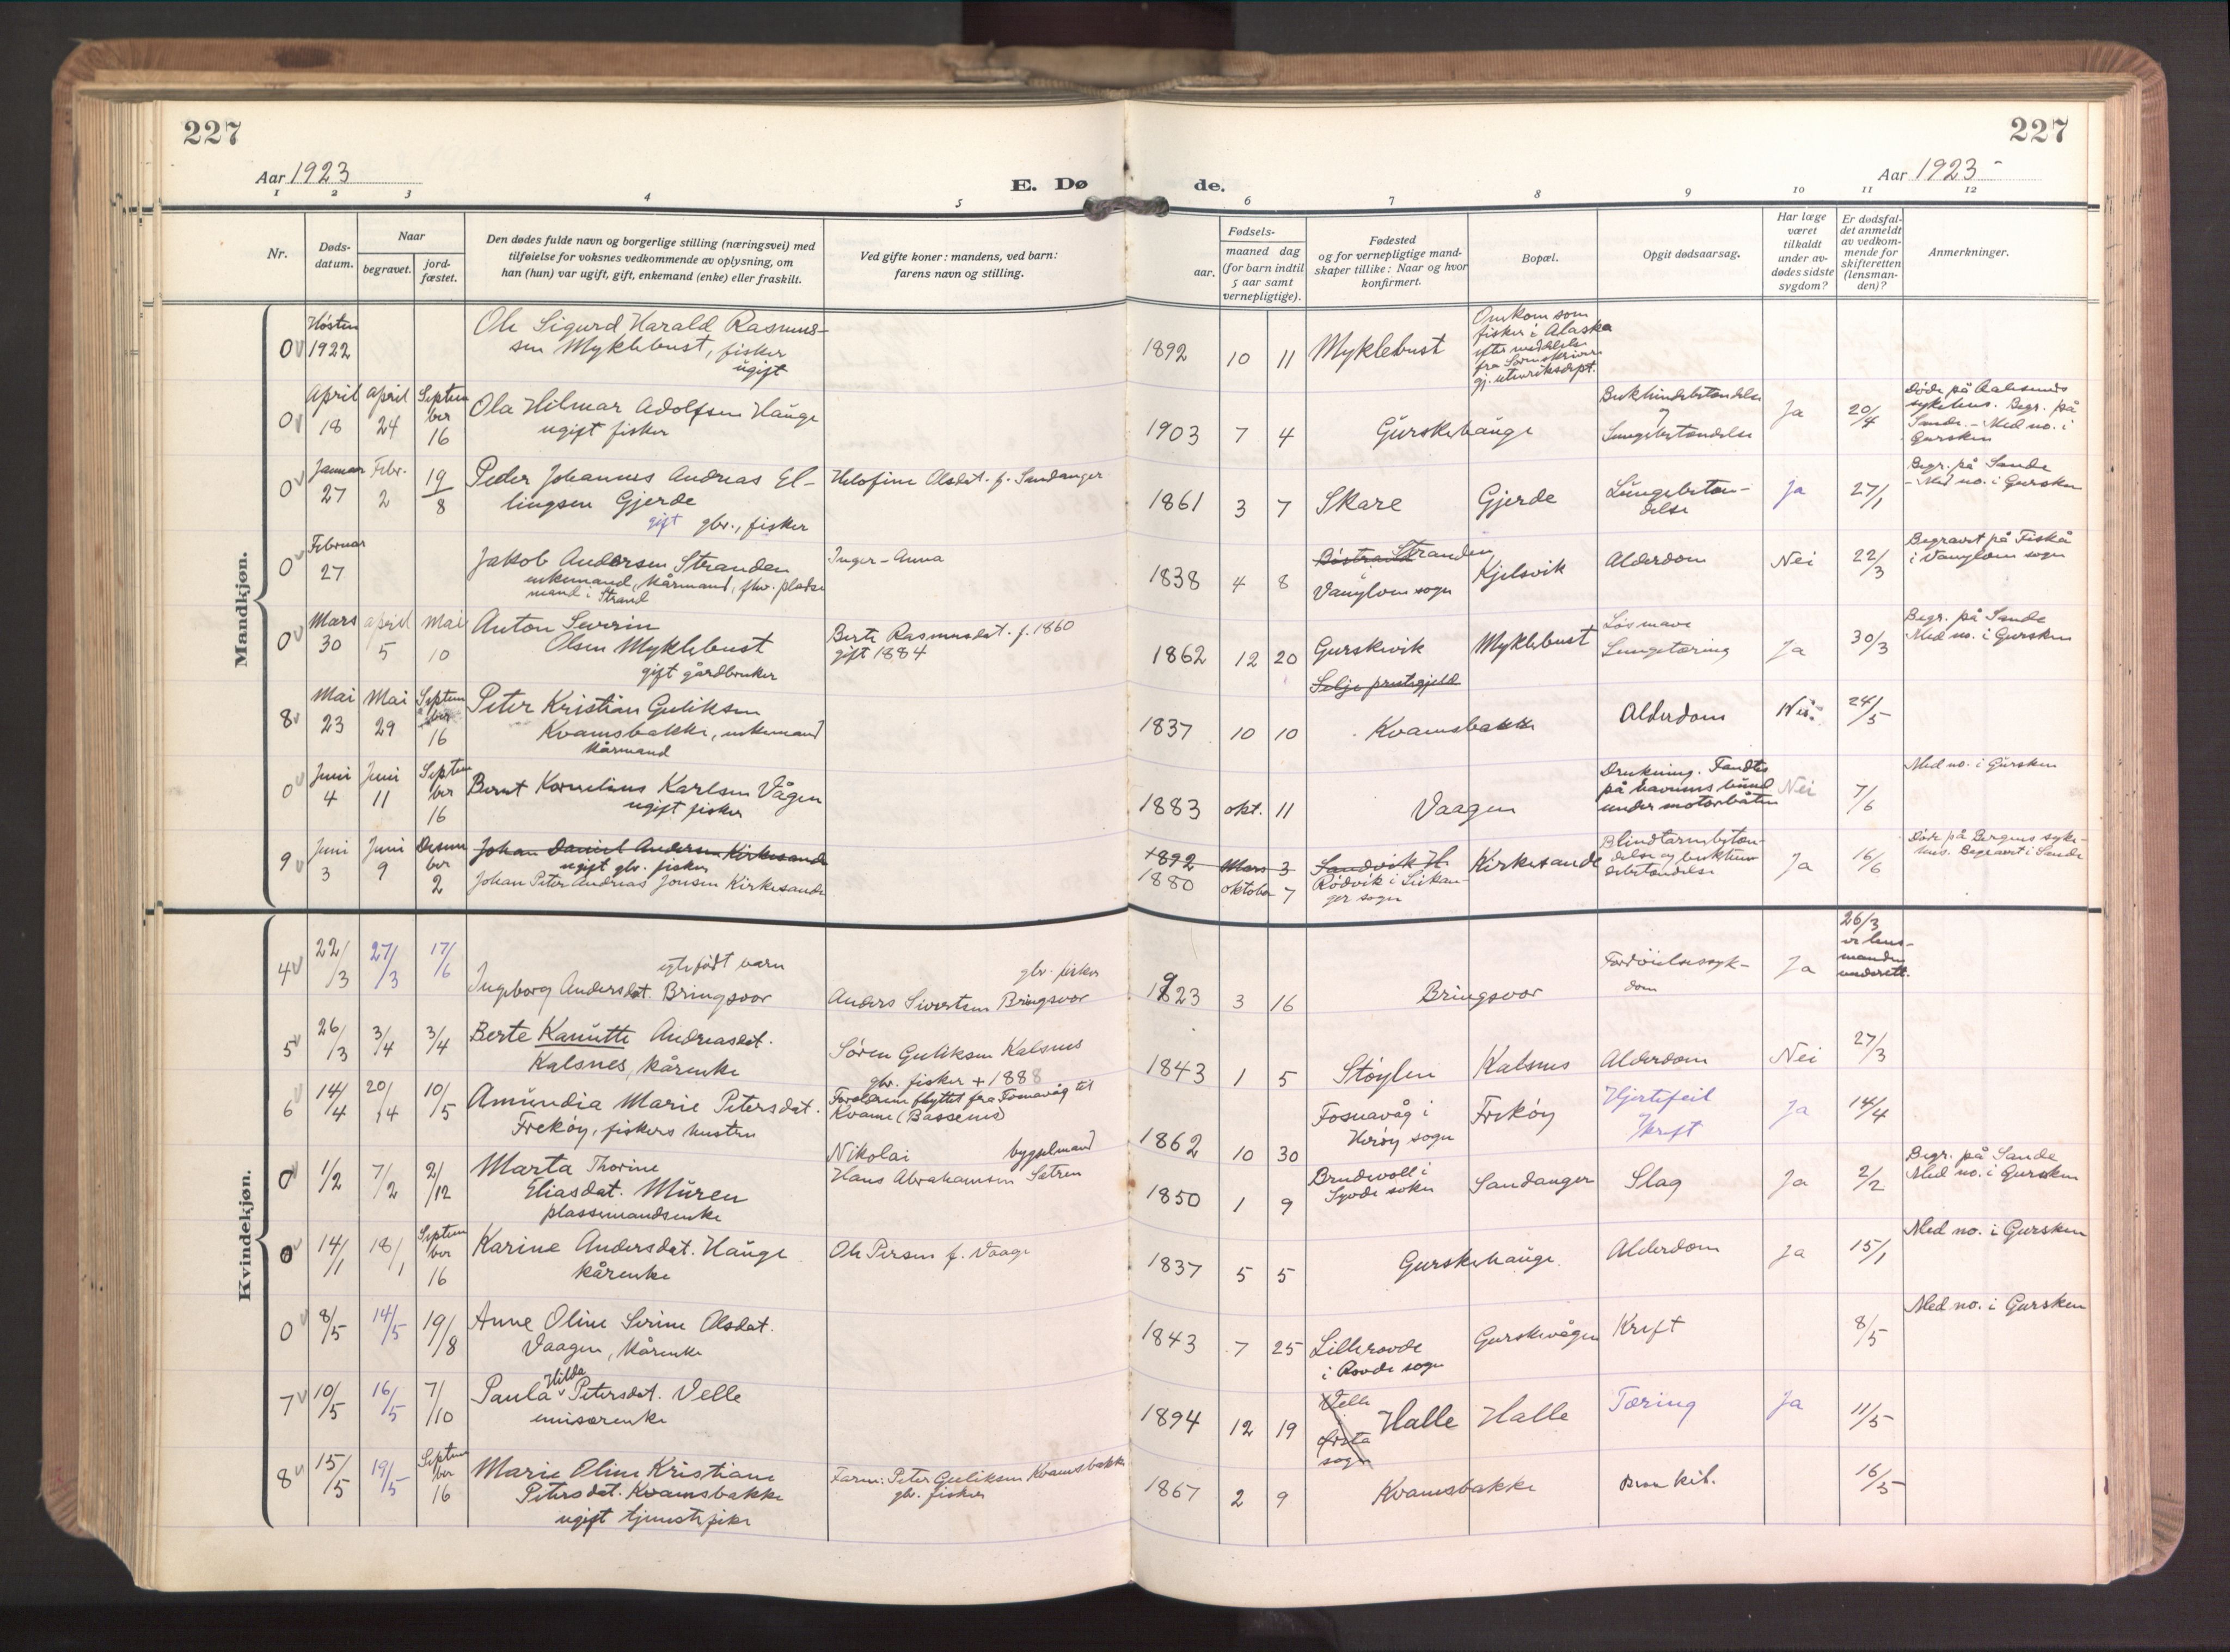 227
227
Aar 1923
Aar 1923
E. Dø
de.
1 2 3 4 5 6 7 8 9 10 11 12
Nr.
Døds-
datum.
Naar
begravet.
jord-
fæstet.
Den dødes fulde navn og borgerlige stilling (næringsvei) med
tilføielse for voksnes vedkommende av oplysning, om
han (hun) var ugift, gift, enkemand (enke) eller fraskilt.
Ved gifte koner: mandens, ved barn:
farens navn og stilling.
Fødsels-
aar.
maaned dag
(for barn indtil
5 aar samt
vernepligtige).
Fødested
og for vernepligtige mand-
skaper tillike: Naar og hvor
konfirmert.
Bopæl.
Opgit dødsaarsag.
Har læge
været
tilkaldt
under av-
dødes sidste
sygdom?
Er dødsfal-
det anmeldt
av vedkom-
mende for
skifteretten
(lensman-
den)?
Anmerkninger.
Mandkjøn.
0 Høsten
1922
Ole Sigurd Harald Rasmus-
sen Myklebust, fisker
ugift
1892 10 11 Myklebust
Omkom som
fisker i Alaska
efter meddelelse
fra Sorenskriver
gj. utenriksdept.
0 April 18 April 24 September 16
Ola Hilmar Adolfsen Hauge
ugift fisker
1903 7 4 Gurskehauge
Bukhindebetændelse
og
Lungebetændelse
Ja 20/4
Døde på Aalesunds
sykehus. Begr. på
Sande. - Med no. i
Gursken
0 Januar 27 Febr. 2 19/8
Peder Johannes Andreas El-
lingsen Gjerde
gift gbr., fisker
Helofine Olsdat. f. Sandanger
1861 3 7 Skare Gjerde
Lungebetæn-
delse
Ja 27/1
Begr. på Sande
- Med no. i Gursken
0 Februar 27
Jakob Andersen Stranden
enkemand, kårmand, fhv. plads-
mand i Strand
Inger-Anna
1838 4 8
Stranden
Vanylven sogn
Kjelsvik Alderdom Nei 22/3
Begravet på Fiskå
i Vanylven sogn
0 Mars 30 April 5 Mai 10
Anton Severin
Olsen Myklebust
gift gårdbruker
Berte Rasmusdat. f. 1860
gift 1884
1862 12 20 Gurskevik Myklebust
Løs mave
Lungetæring
Ja 30/3
Begr. på Sande
Med no. i Gursken
8 Mai 23 Mai 29 September 16
Peter Kristian Guliksen
Kvamsbakke, enkemand
kårmand
Selje prestegjeld
1837 10 10 Kvamsbakke
Alderdom Nei 24/5
0 Juni 4 Juni 11 September 16
Bernt Kornelius Karlsen Vågen
ugift fisker
1883 okt. 11 Vaagen
Drukning. Fandtes
på havnens bund
under motorbåten
Nei 7/6
Med no. i Gursken
9 Juni 3 Juni 9 Desember 2
Johan Daniel Andersen Kirkesande
ugift gbr. fisker
Johan Peter Andreas Jonsen Kirkesande
1892 Mars 3 Sandvik H.
1880 oktober 7 Rødvik i Leikan-
ger sogn
Kirkesande
Blindtarmbetæn-
delse og bukhin-
debetændelse
Ja 16/6
Døde på Bergens syke-
hus. Begravet i Sande
Kvindekjøn.
4 22/3 27/3 17/6
egtefødt barn
Ingeborg Andersdat. Bringsvor
gbr. fisker
Anders Sivertsen Bringsvor
1923 3 16 Bringsvor
Fordøielsessyk-
dom
Ja
26/3
er lens-
manden
underett.
5 26/3 3/4 3/4
Berte Kanutte Andreasdat.
Kalsnes, kårenke
Søren Guliksen Kalsnes
gbr. fisker + 1888
1843 1 5 Støylen Kalsnes Alderdom Nei 27/3
6 14/4 20/4 10/5
Amundia Marie Petersdat.
Frekøy, fiskers hustru
Forældrene flyttet fra Fosnavåg til
Kvame (Bassenes)
1862 10 30
Fosnavåg i
Herøy sogn
Frekøy
Hjertefeil
Kreft
Ja 14/4
0 1/2 7/2 2/12
Marta Thorine
Eliasdat. Muren
plassemandsenke
Nikolai bygselmand
Hans Abrahamsen Sætren
1850 1 9
Brudevoll i
Syvde sokn
Sandanger Slag Ja 2/2
Begr. på Sande
Med no. i Gursken
0 14/1 18/1 September 16
Karine Andersdat. Hauge
kårenke
Ole Persen f. Vaage
1837 5 5 Gurskehauge.
Alderdom Ja 15/1
Med no. i Gursken
0 8/5 14/5 19/8
Anne Oline Serine Olsdat.
Vaagen, kårenke
1843 7 25
Lillerovde
i Rovde sogn
Gurskevågen Kreft 8/5
Med no. i Gursken
7 10/5 16/5 7/10
Hilda
Paula Petersdat. Velle
emisærenke
1894 12 19
Velle
Ørsta
sogn
Halle Halle Tæring Ja 11/5
8 15/5 19/5 September 16
Marie Oline Kristiane
Petersdat. Kvamsbakke
ugift tjenestepike
Faren: Peter Guliksen Kvamsbakke
gbr. fisker
1867 2 9 Kvamsbakke
16/5